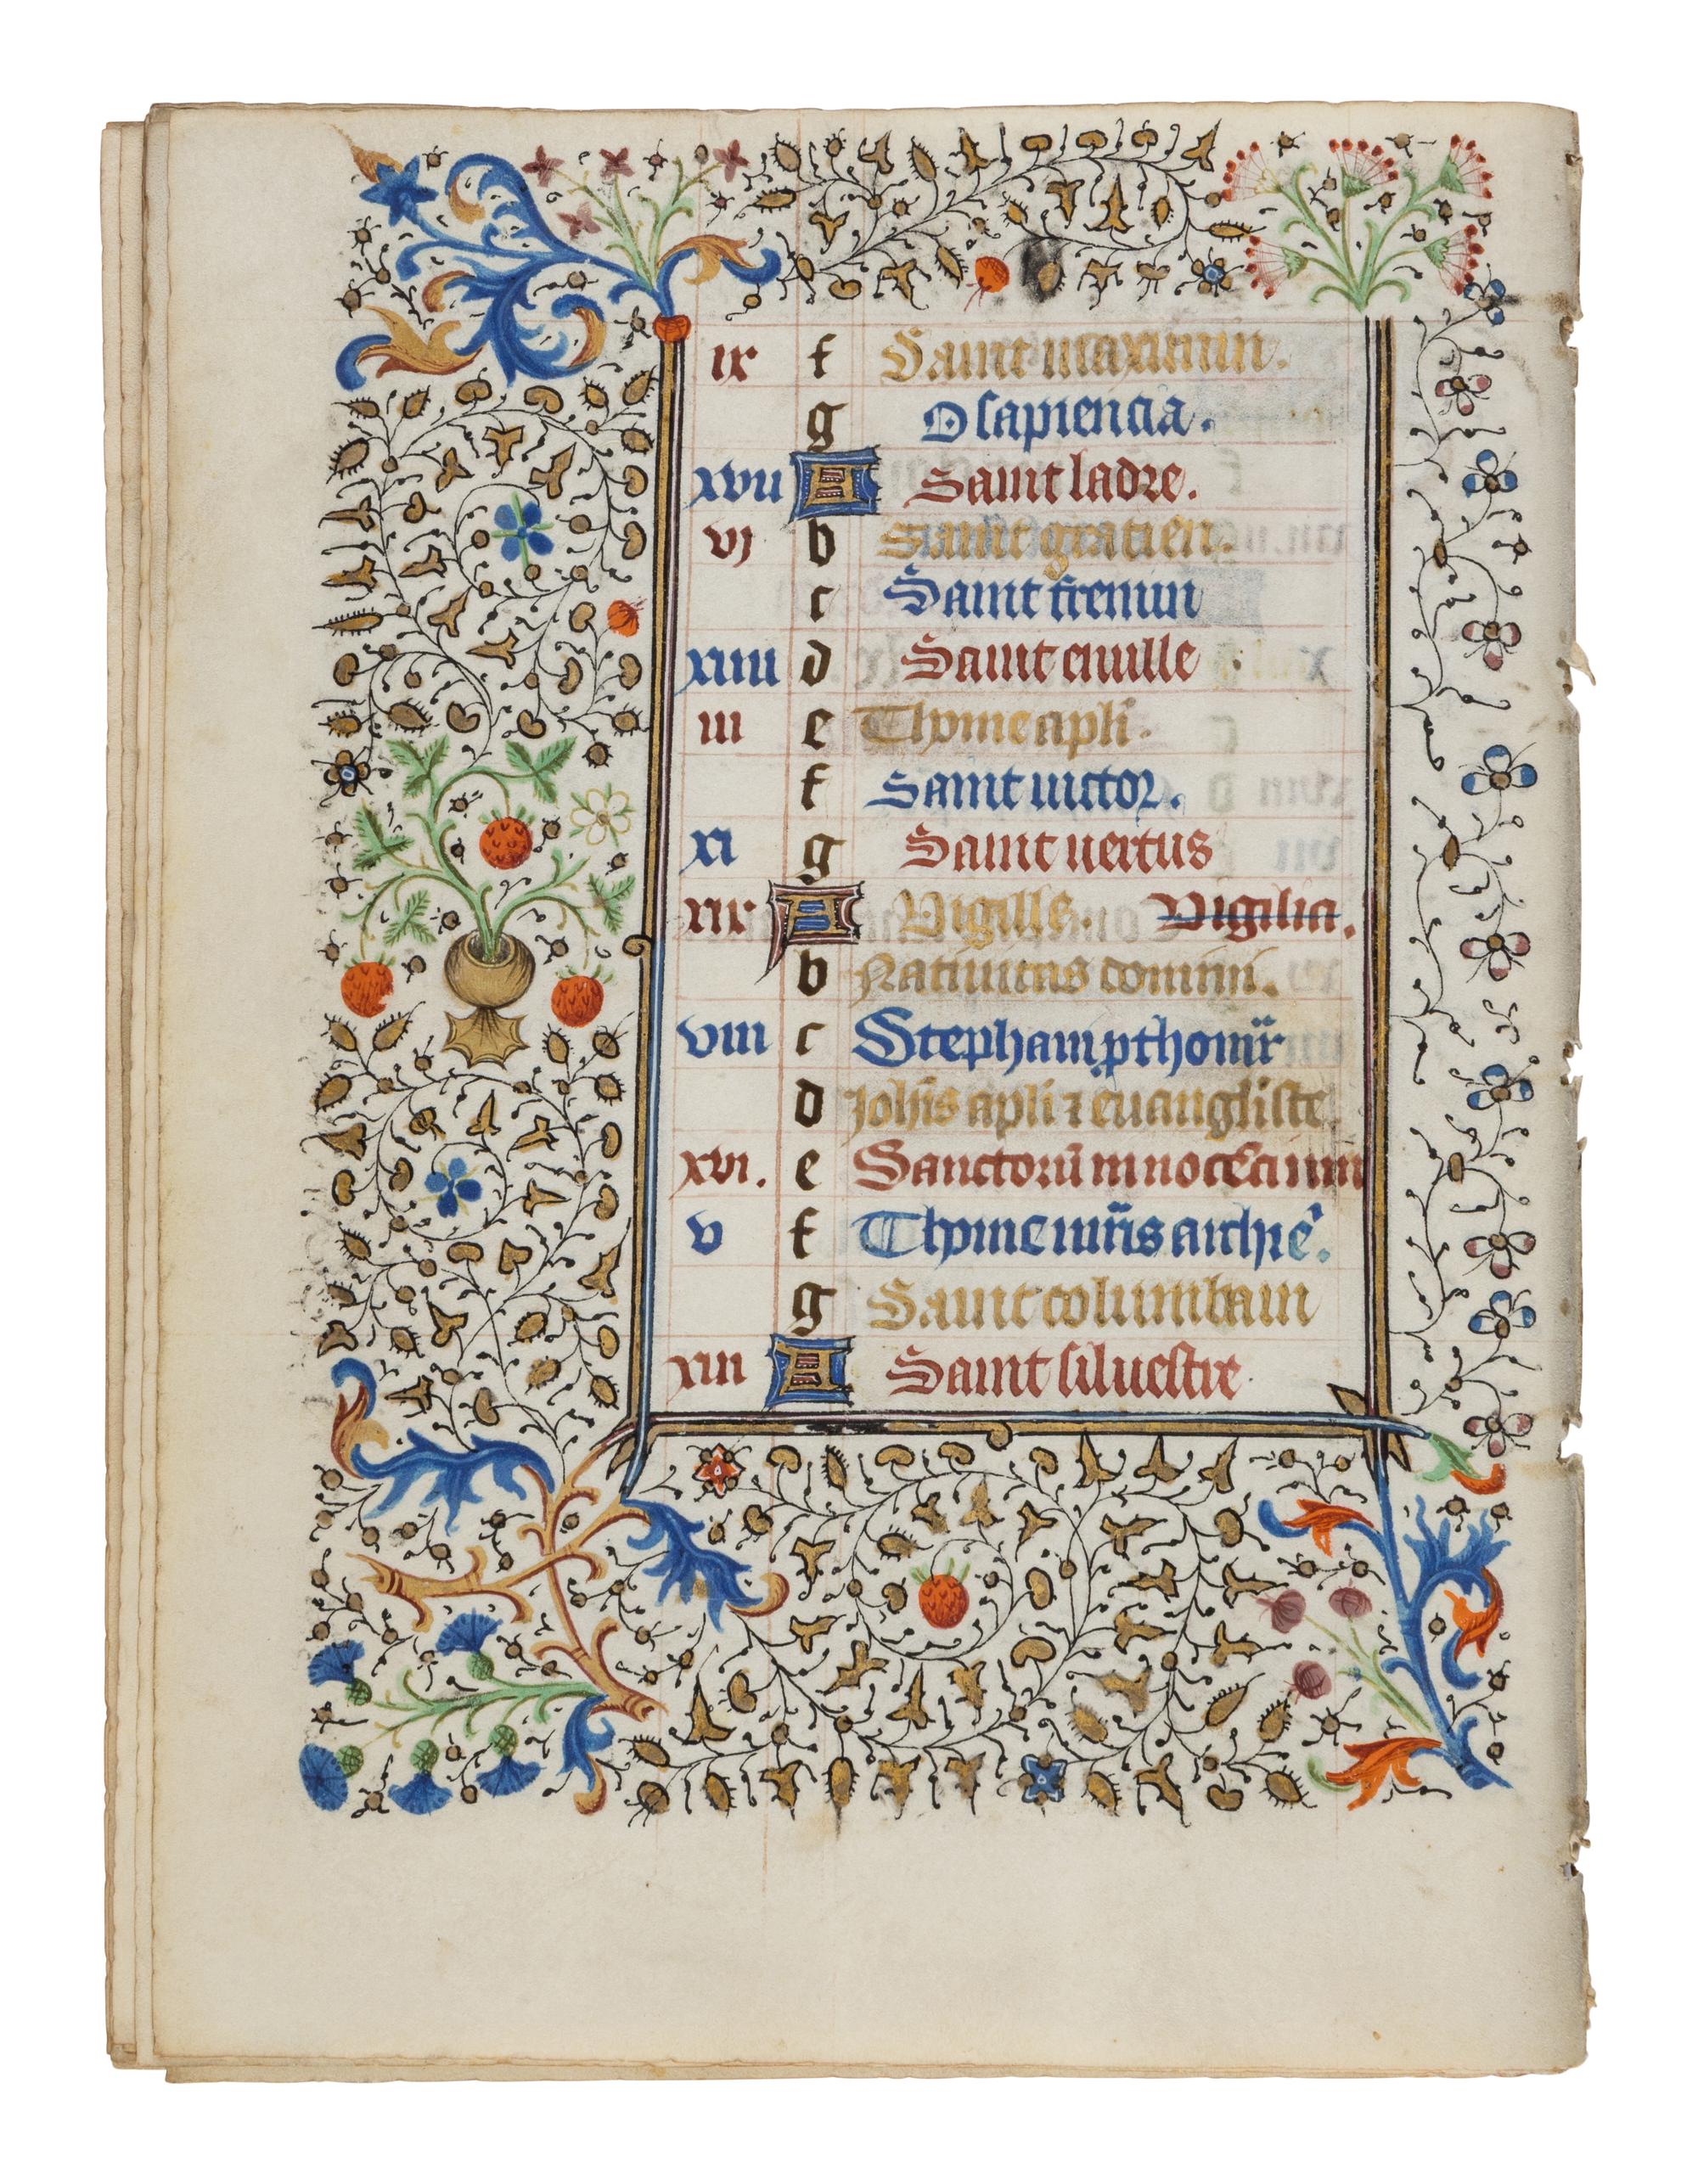 ix f Saint maximin.
g O sapiencia.
xvii A Saint ladre.
vj b Saint gratien.
c Saint fremin
xiiii d Saint cuille
iii e Thome apli.
f Saint victor.
xi g Saint vertus
xix A Vigille. Vigilia.
b Nativitas domini.
viii c Stephani pthomr̃
d Johis apli ⁊ euangliste.
xvi. e Sanctorũ innocẽcium
v f Thome mr̃is archie᾽.
g Saint columbain
xiii A Saint silvestre